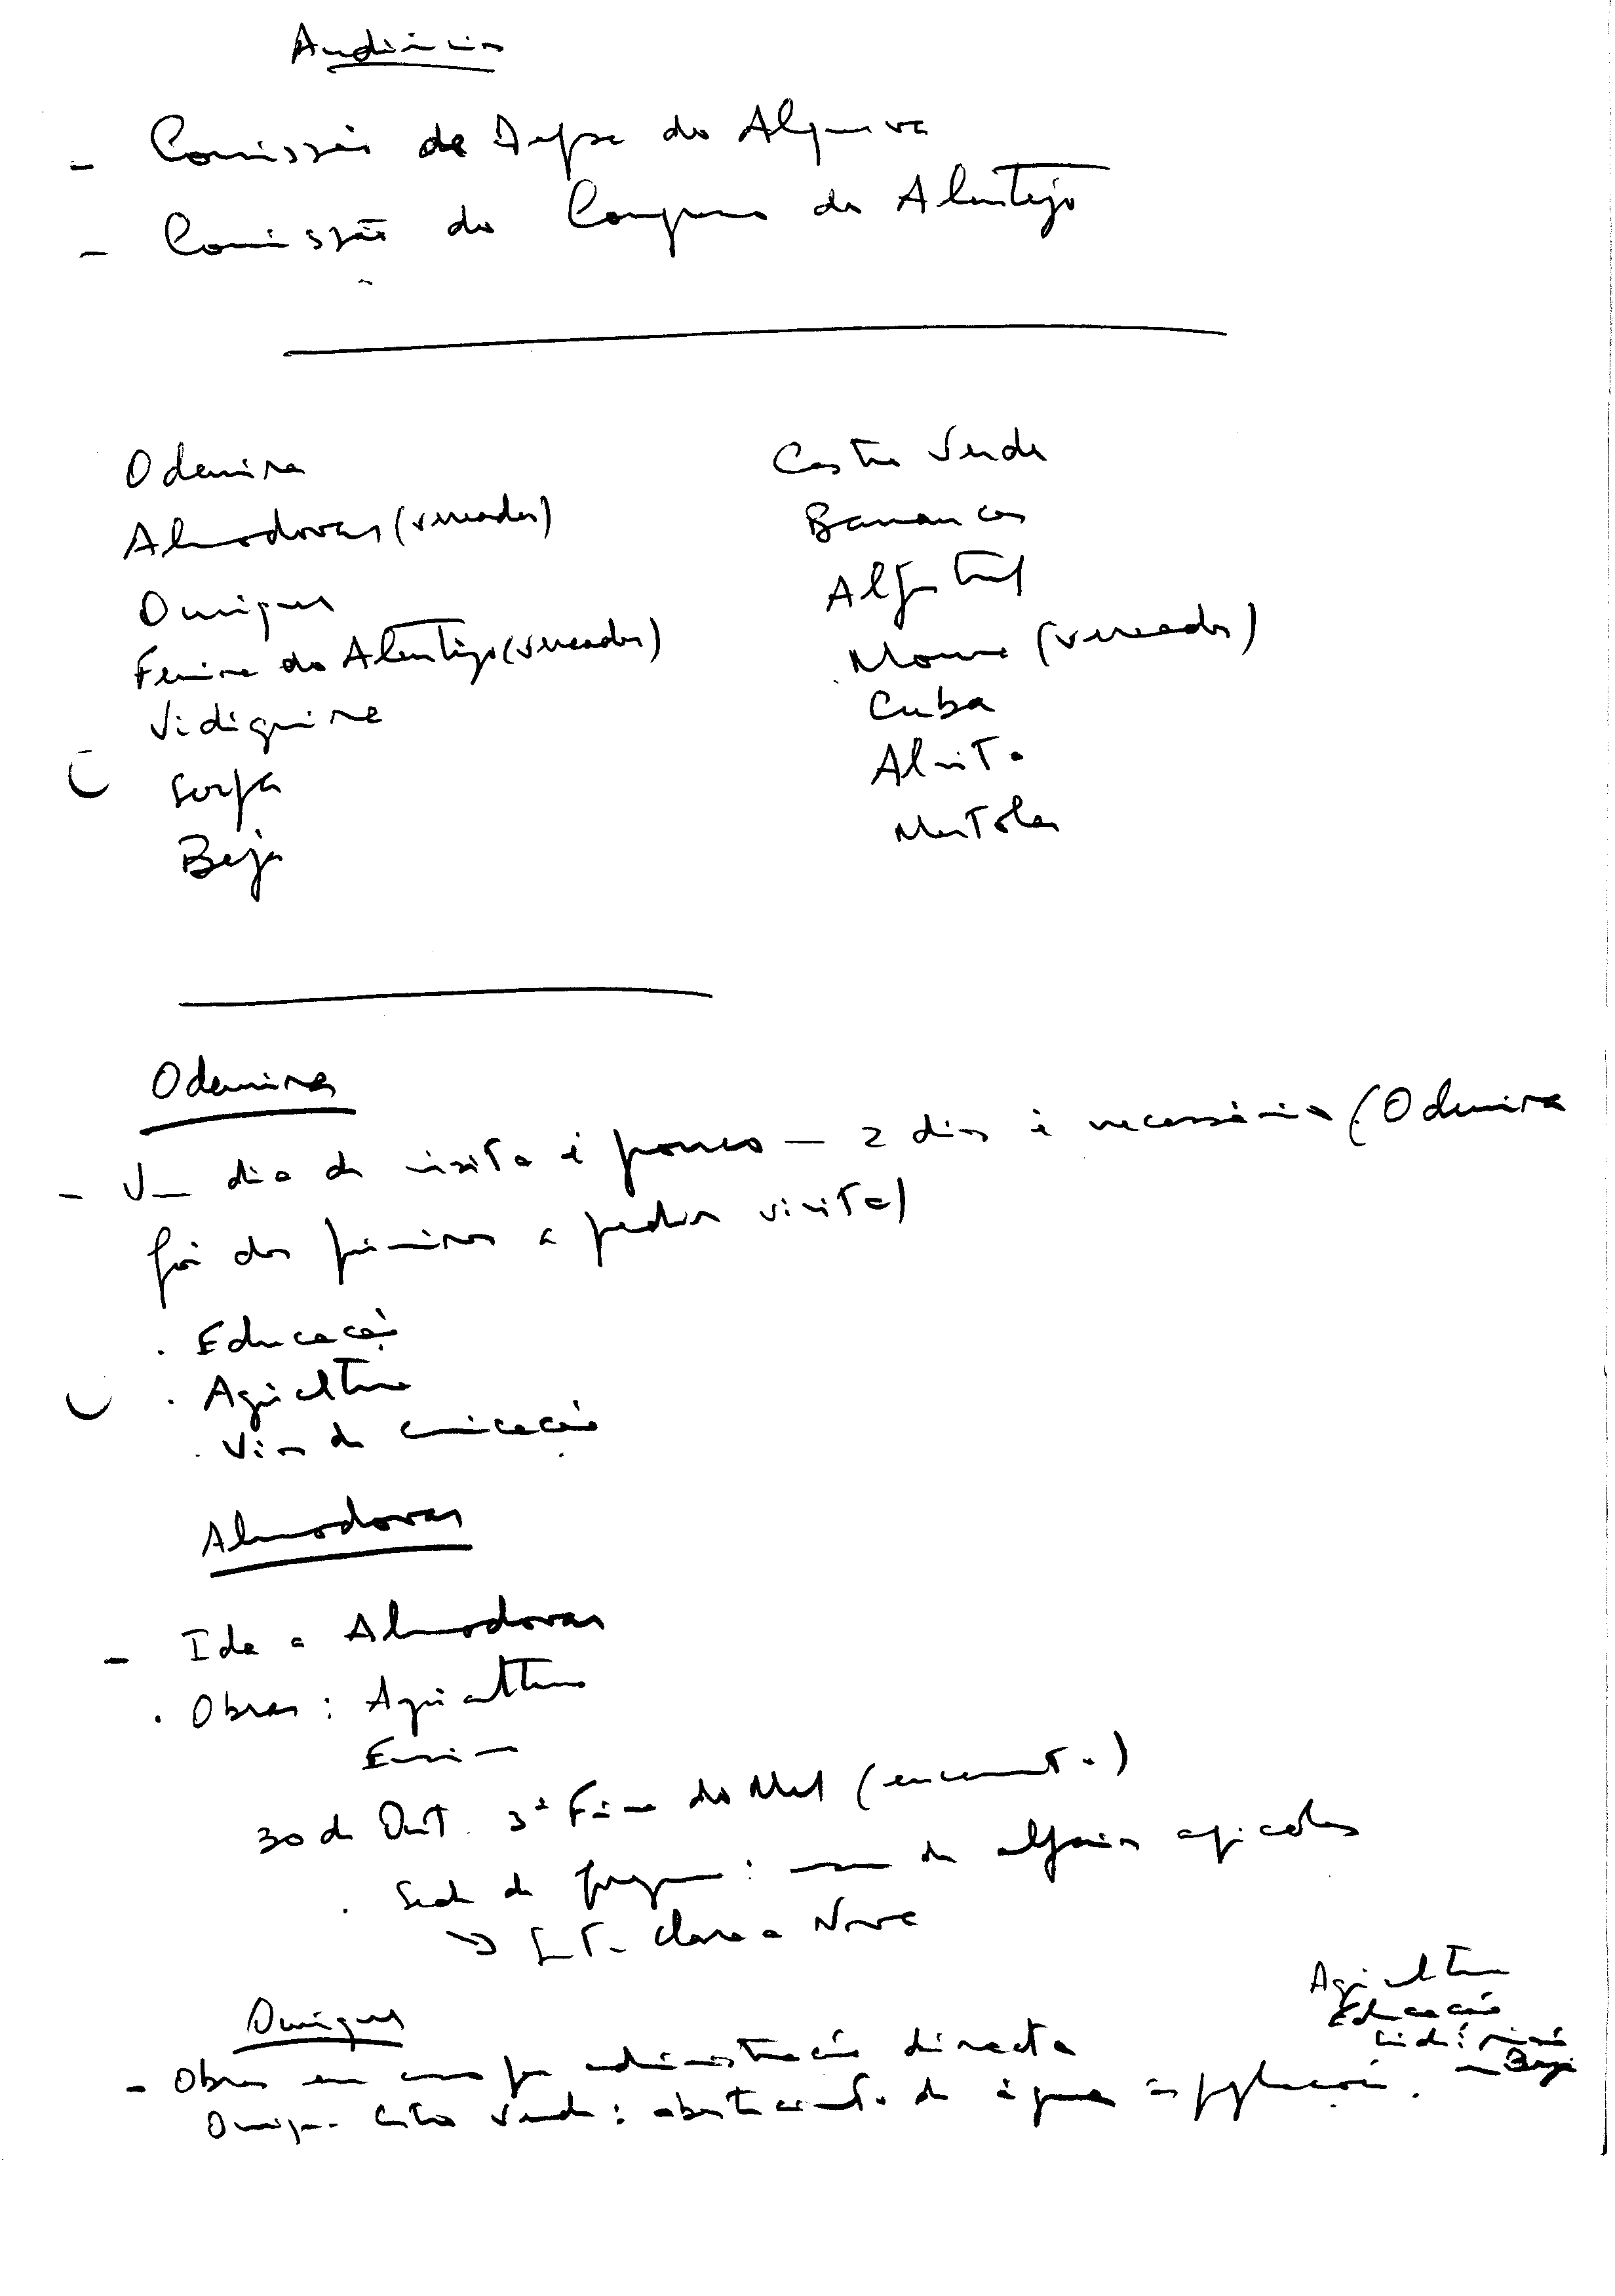 Audiências
- Comissão de Defesa do Alqueva
- Comissão do Congresso do Alentejo
Odemira
Almodovar (vereador)
Ourique
Ferreira do Alentejo (vereador)
Vidigueira
Serpa
Beja
Castro Verde
Barrancos
Aljustrel
Moura (vereador)
Cuba
Alvito
Mertola
Odemira
- Um dia de visita é pouco — 2 dias é necessário (Odemira
foi dos primeiros a pedir visita)
. Educação
. Agricultura
. Vias de comunicação
Almodovar
- Ida a Almodovar
. Obras: Agricultura
Ensino
30 de Out. 3ª Feira do Mel (encerramento)
. Sede de freguesia: museu de alfaias agricolas
→ Sta. Clara a Nova
Ourique
- Obras em curso por administração directa
Ourique - Castro Verde: abastecimento de água às populações.
Agricultura
Educação
Beja